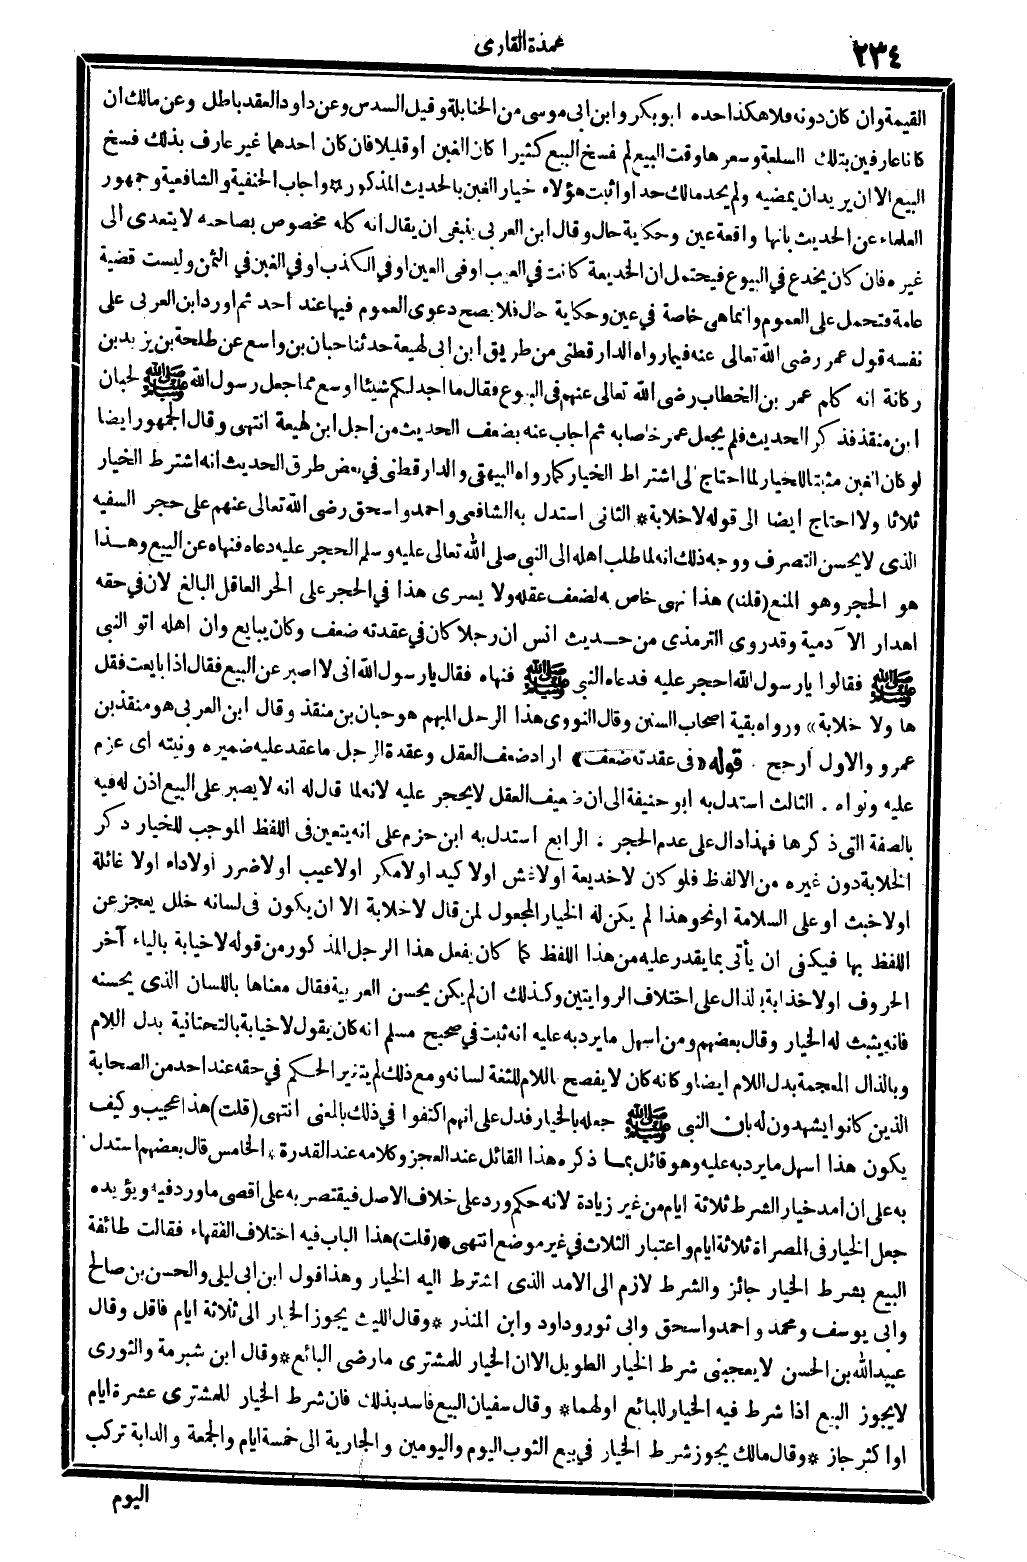 عمدة القارى
٢٣٤
القيمة وان كان دونه فلا هكذا حده ابو بكر وابن ابى موسى من الحنابلة وقيل السدس وعن داود العقد باطل وعن مالك ان
كانا عارفين بتلك السلعة وسعرها وقت البيع لم فسخ البيع كثيرا كان الغبن او قليلا فان كان احدهما غير عارف بذلك فسخ
البيع الا ان يريد ان يمضيه ولم يحد مالك حدا واثبت هؤلاء خيار الغبن بالحديث المذكور * واجاب الحنفية والشافعية وجمهور
العلماء عن الحديث بانها واقعة عين وحكاية حال وقال ابن العربى ينبغى ان يقال انه كله مخصوص بصاحبه لا يتعدى الى
غيره فان كان يخدع في البيوع فيحتمل ان الخديعة كانت في العيب او في العين او في الكذب او في الغبن في الثمن وليست قضية
عامة فتحمل على العموم وانما هى خاصة في عين وحكاية حال فلا يصح دعوى العموم فيها عند احد ثم اورد ابن العربى على
نفسه قول عمر رضى الله تعالى عنه فيما رواه الدارقطنى من طريق ابن ابى لهيعة حدثنا حبان بن واسع عن طلحة بن يزيد بن
ركانة انه كلم عمر بن الخطاب رضى الله تعالى عنهم في البيوع فقال ما اجد لكم شيئا اوسع مما جعل رسول الله ﷺ لحبان
ابن منقذ فذكر الحديث فلم يجعل عمر خاصا به ثم اجاب عنه بضعف الحديث من اجل ابن لهيعة انتهى وقال الجمهور ايضا
لو كان الغبن مثبتا للخيار لما احتاج الى اشتراط الخيار كما رواه البيهقى والدارقطنى في بعض طرق الحديث انه اشترط الخيار
ثلاثا ولا احتاج ايضا الى قوله لاخلابة * الثانى استدل به الشافعى واحمد واسحق رضى الله تعالى عنهم على حجر السفيه
الذى لايحسن التصرف ووجه ذلك انه لما طلب اهله الى النبى صلى الله تعالى عليه وسلم الحجر عليه دعاه فنهاه عن البيع وهذا
هو الحجر وهو المنع (قلنا) هذا نهى خاص به لضعف عقله ولا يسرى هذا في الحجر على الحر العاقل البالغ لان في حقه
اهدار الآدمية وقد روى الترمذى من حديث انس ان رجلا كان في عقدته ضعف وكان يبايع وان اهله اتو النبى
ﷺ فقالوا يارسول الله احجر عليه فدعاه النبى ﷺ فنهاه فقال يارسول الله انى لا اصبر عن البيع فقال اذا بايعت فقل
ها ولا خلابة» ورواه بقية اصحاب السنن وقال النووى هذا الرجل المبهم هو حبان بن منقذ وقال ابن العربى هو منقذ بن
عمرو والاول أرجح . قوله «فى عقدته ضعف» اراد ضعف العقل وعقدة الرجل ما عقد عليه ضميره ونيته اى عزم
عليه ونواه . الثالث استدل به ابو حنيفة الى ان ضعيف العقل لايحجر عليه لانه لما قال له انه لا يصبر على البيع اذن له فيه
بالصفة التى ذكرها فهذا دال على عدم الحجر : الرابع استدل به ابن حزم على انه يتعين فى اللفظ الموجب للخيار ذكر
الخلابة دون غيره من الالفظ فلو كان لاخديعة اولاغش اولا كيد اولا مكر اولا عيب اولا ضرر اولا داء اولا غائلة
اولا خبث او على السلامة او نحو هذا لم يكن له الخيار المجعول لمن قال لاخلابة الا ان يكون فى لسانه خلل يعجز عن
اللفظ بها فيكفى ان يأتى بما يقدر عليه من هذا اللفظ كما كان يفعل هذا الرجل المذكور من قوله لاخيابة بالياء آخر
الحروف اولا خذابة بالذال على اختلاف الروايتين وكذلك ان لم يكن يحسن العربية فقال معناها باللسان الذى يحسنه
فانه يثبت له الخيار وقال بعضهم ومن اسهل ما يرد به عليه انه ثبت في صحيح مسلم انه كان يقول لاخيابة بالتحتانية بدل اللام
وبالذال المعجمة بدل اللام ايضا وكانه كان لا يفصح باللام للثغة لسانه ومع ذلك لم يتغير الحكم في حقه عند احد من الصحابة
الذين كانوا يشهدون له بان النبى ﷺ جعله بالخيار فدل على انهم اكتفوا في ذلك بالمعنى انتهى (قلت) هذا عجيب وكيف
يكون هذا اسهل ما يرد به عليه وهو قائل بما ذكره هذا القائل عند العجز وكلامه عند القدرة * الخامس قال بعضهم استدل
به على ان امد خيار الشرط ثلاثة ايام من غير زيادة لانه حكم ورد على خلاف الاصل فيقتصر به على اقصى ماورد فيه ويؤيده
جعل الخيار فى المصراة ثلاثة ايام واعتبار الثلاث في غير موضع انتهى * (قلت) هذا الباب فيه اختلاف الفقهاء فقالت طائفة
البيع بشرط الخيار جائز والشرط لازم الى الامد الذى اشترط اليه الخيار وهذا قول ابن ابى ليلى والحسن بن صالح
وابى يوسف ومحمد واحمد واسحق وابى ثور وداود وابن المنذر * وقال الليث يجوز الخيار الى ثلاثة ايام فاقل وقال
عبيد الله بن الحسن لا يعجبنى شرط الخيار الطويل الا ان الخيار للمشترى مارضى البائع * وقال ابن شبرمة والثورى
لايجوز البيع اذا شرط فيه الخيار للبائع اولهما * وقال سفيان البيع فاسد بذلك فان شرط الخيار للمشترى عشرة ايام
او اكثر جاز * وقال مالك يجوز شرط الخيار في بيع الثوب اليوم واليومين والجارية الى خمسة ايام والجمعة والدابة تركب
اليوم